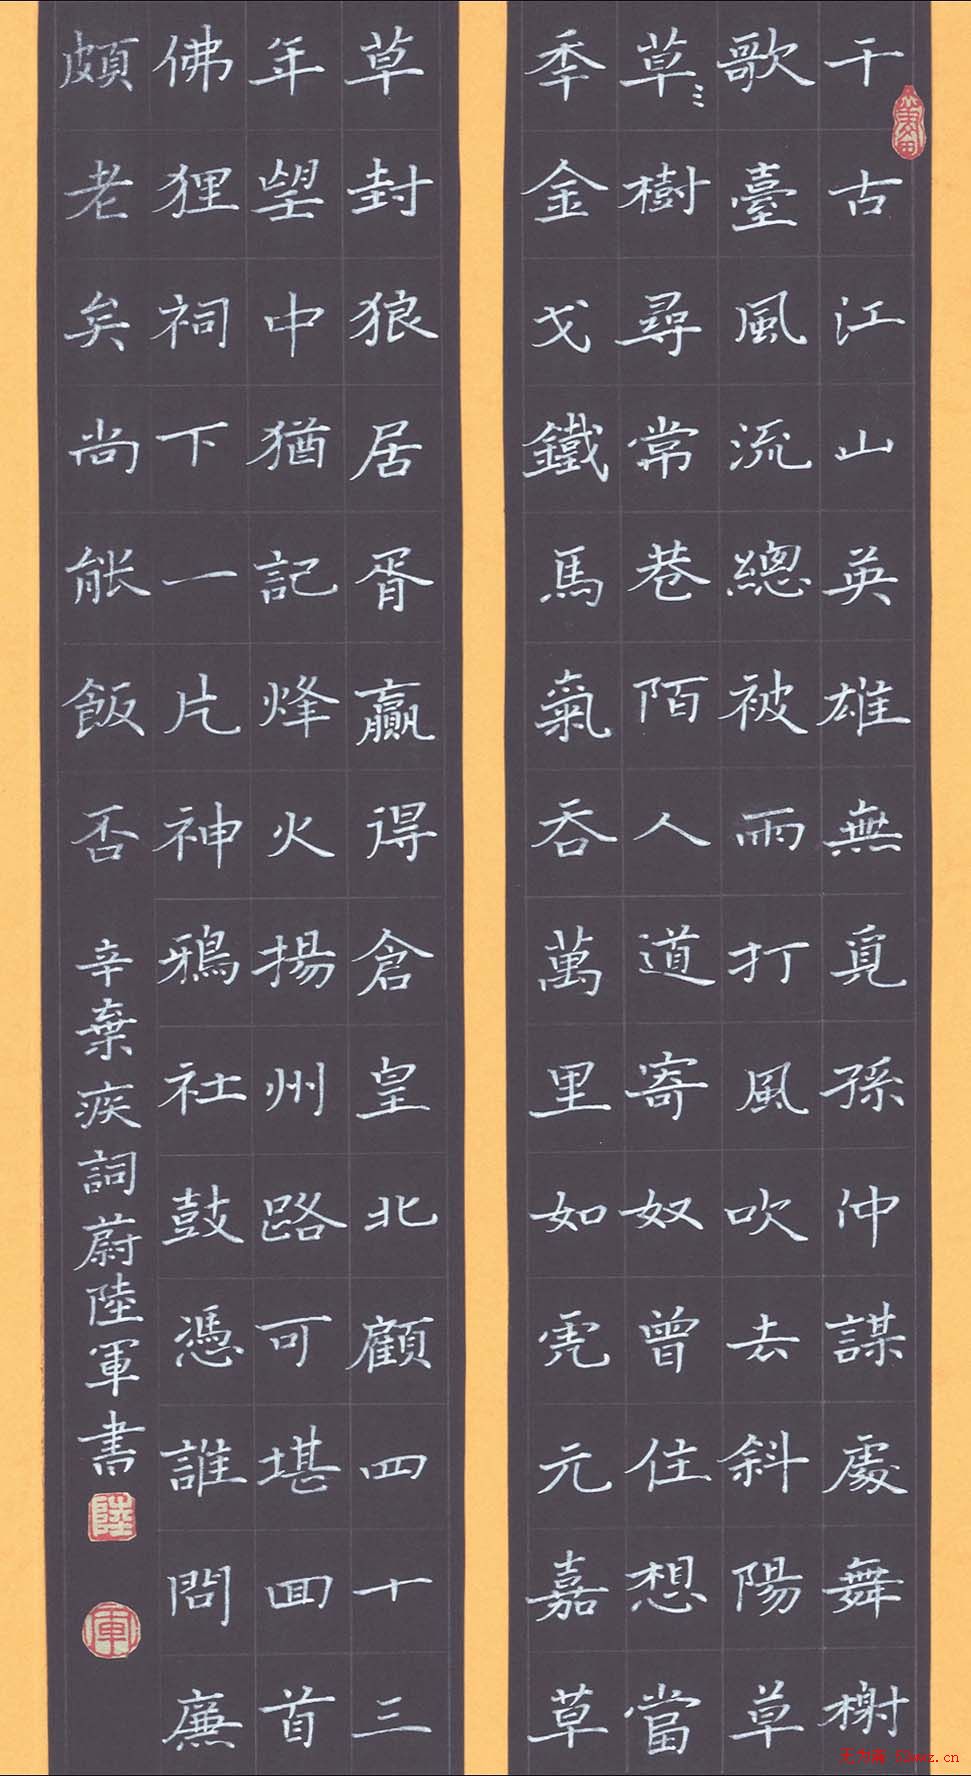 千古江山英雄無覓孫仲謀處舞榭
歌臺風流總被雨打風吹去斜陽草
草樹尋常巷陌人道寄奴曾住想當
秊金戈鐵馬氣吞萬里如虎元嘉草
草封狼居胥贏得倉皇北顧四十三
年望中猶記烽火揚州路可堪囬首
佛狸祠下一片神鴉社鼓憑誰問廉
頗老矣尚能飯否
辛棄疾詞蔚陸軍書
陸
軍